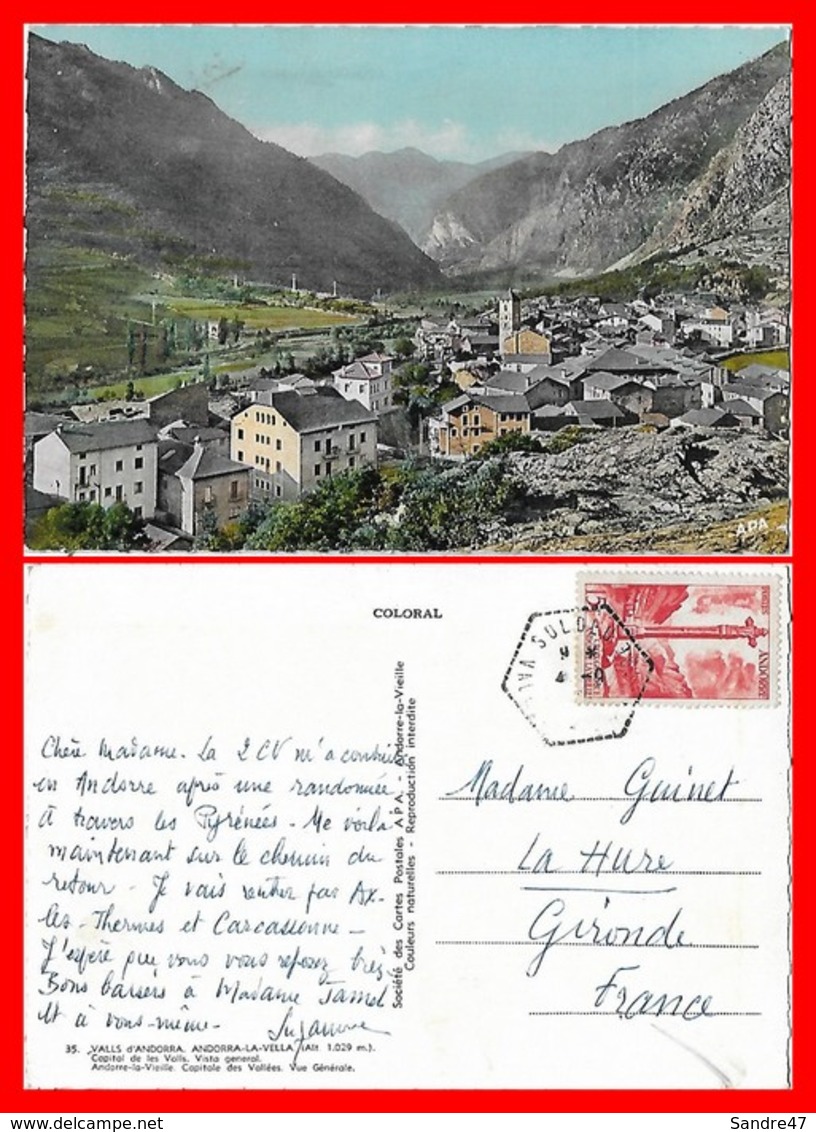 APA
COLORAL
15F
POSTES
ANDORRE
SOLDEU
VAL
4 - 9
Société des Cartes Postales A P A. - Andorre-la-Vieille
Couleurs naturelles - Reproduction interdite
Chère Madame. La 2 CV m'a conduite
en Andorre après une randonnée
à travers les Pyrénées - Me voilà
maintenant sur le chemin du
retour - Je vais rentrer par Ax-
les-Thermes et Carcassonne -
J'espère que vous vous reposez bien
Bons baisers à Madame Jamet
et à vous-même - Suzanne
Madame Guinet
La Hure
Gironde
France
35. VALLS d'ANDORRA. ANDORRA-LA-VELLA (Alt. 1.029 m.).
Capital de les Valls. Vista general.
Andorre-la-Vieille. Capitale des Vallées. Vue Générale.
Sandre47